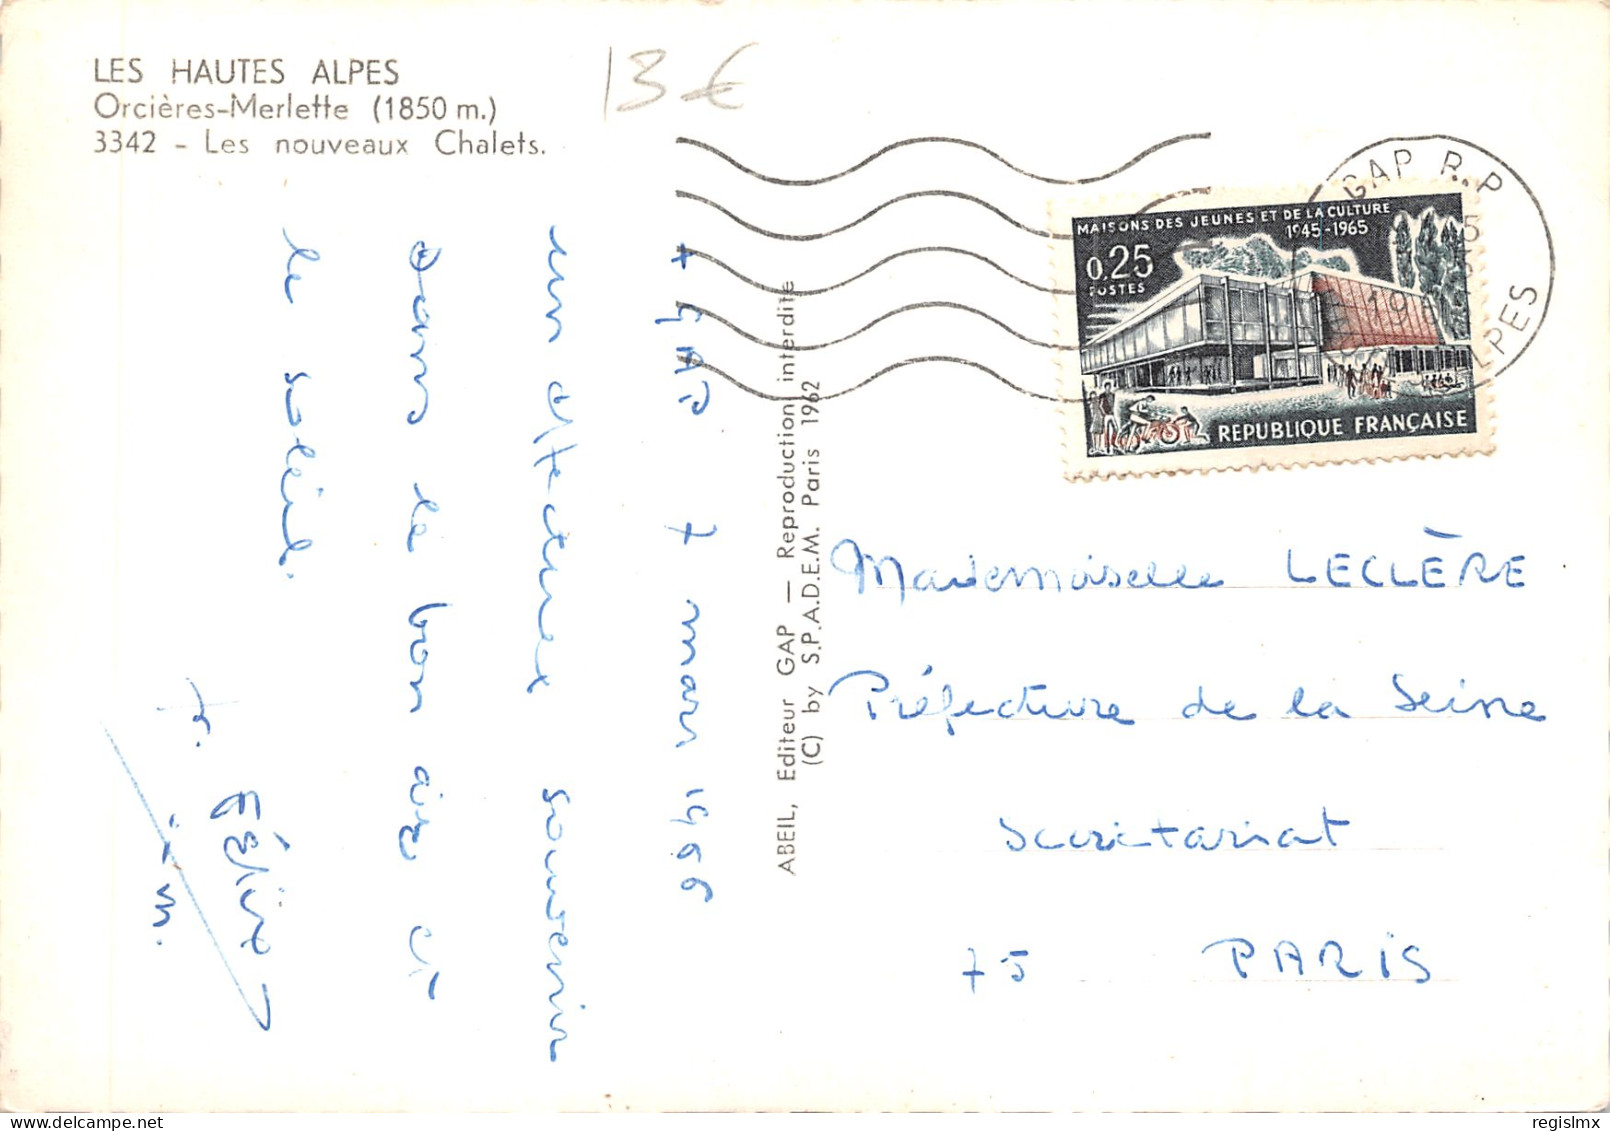 LES HAUTES ALPES
Orcières-Merlette (1850 m.)
3342 - Les nouveaux Chalets.
13 €
GAP R.P
ALPES
MAISONS DES JEUNES ET DE LA CULTURE
1945-1965
0,25
POSTES
REPUBLIQUE FRANÇAISE
+ GAP 7 mars 1966
un affectueux souvenir
dans le bon air et
le soleil.
ABEIL, Editeur GAP — Reproduction interdite
(C) by S.P.A.D.E.M. Paris 1962
Mademoiselle LECLÈRE
Préfecture de la Seine
Secrétariat
75 PARIS
regislmx